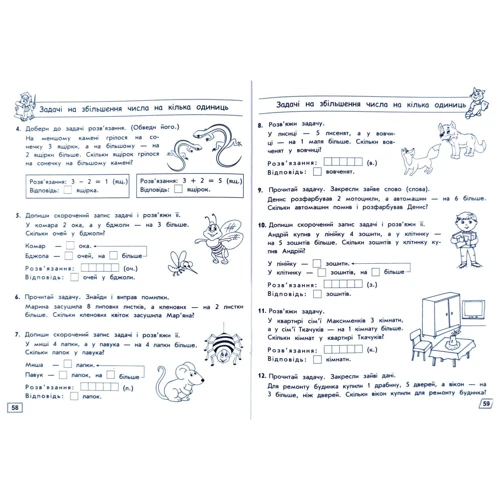 Задачі на збільшення числа на кілька одиниць
4. Добери до задачі розв'язання. (Обведи його.)
На меншому камені грілося на со-
нечку 3 ящірки, а на більшому — на
2 ящірки більше. Скільки ящірок грілося
на сонечку на більшому камені?
Розв'язання: 3 – 2 = 1 (ящ.)
Відповідь: ящірка.
Розв'язання: 3 + 2 = 5 (ящ.)
Відповідь: ящірок.
5. Допиши скорочений запис задачі і розв'яжи її.
У комара 2 ока, а у бджоли — на 3 більше.
Скільки очей у бджоли?
Комар — ока.
Бджола — очей, на більше
Розв'язання: (оч.)
Відповідь: очей у бджоли.
6. Прочитай задачу. Знайди і виправ помилки.
Марина засушила 8 липових листків, а кленових — на 2 листки
більше. Скільки кленових квіток засушила Мар'яна?
7. Допиши скорочений запис задачі і розв'яжи її.
У миші 4 лапки, а у павука — на 4 лапки більше.
Скільки лапок у павука?
Миша — лапки.
Павук — лапок, на більше
Розв'язання: (л.)
Відповідь: лапок.
58
Задачі на збільшення числа на кілька одиниць
8. Розв'яжи задачу.
У лисиці — 5 лисенят, а у вовчи-
ці — на 1 маля більше. Скільки
вовченят у вовчиці?
Розв'язання: (в.)
Відповідь: вовченят.
9. Прочитай задачу. Закресли зайве слово (слова).
Денис розфарбував 2 мотоцикли, а автомашин — на 6 більше.
Скільки автомашин помив і розфарбував Денис?
10. Допиши скорочений запис задачі і розв'яжи її.
Андрій купив у лінійку 4 зошити, а у клітинку —
на 5 зошитів більше. Скільки зошитів у клітинку ку-
пив Андрій?
У лінійку — зошити.
У клітинку — зошитів, на більше
Розв'язання: (з.)
Відповідь: зошитів.
11. Розв'яжи задачу.
У квартирі сім'ї Максименків 3 кімнати,
а у сім'ї Ткачуків — на 1 кімнату більше.
Скільки кімнат у квартирі Ткачуків?
Розв'язання: (к.)
Відповідь: кімнати.
12. Прочитай задачу. Закресли зайві дані.
Для ремонту будинка купили 1 драбину, 5 дверей, а вікон — на
3 більше, ніж дверей. Скільки вікон купили для ремонту будинка?
59